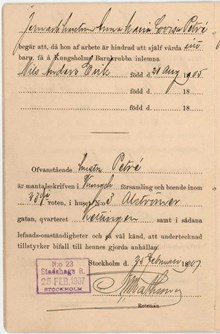 Anna Maria Lovisa Petré
begär att, då hon af arbete är hindrad att själf vårda sitt
barn, få å Kungsholms Barnkrubba inlemna
Nils Anders Erik född d. 21 Aug 1905
född d. 18
född d. 18
Ofvanstående Petré
är mantalsskrifven i Kungsh. församling och boende inom
roten, i hus n:o 3 Alströmer
gatan, qvarteret samt i sådana
lefnads-omständigheter och så väl känd, att undertecknad
tillstyrker bifall till hennes gjorda anhållan.
Stockholm d. 25 Februari 1907
Ro 23
Stadshags R.
25 FEB. 1907
STOCKHOLM
Roteman.